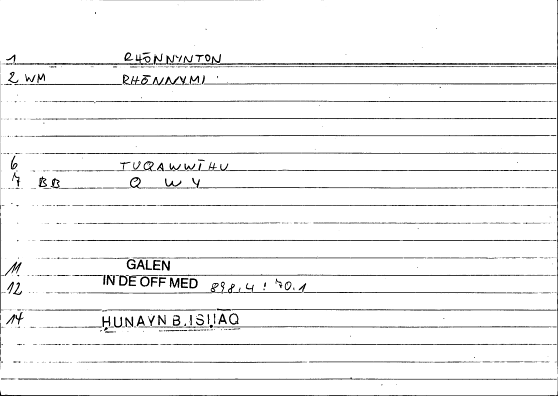 1 RHŌNNYNTŌN
2 WM RHŌNNYMI
6 TUQAWWĪHU
7 BB Q W Y
11 GALEN
12 IN DE OFF MED 898,4 : 70.1
14 HUNAYN B. ISḤĀQ